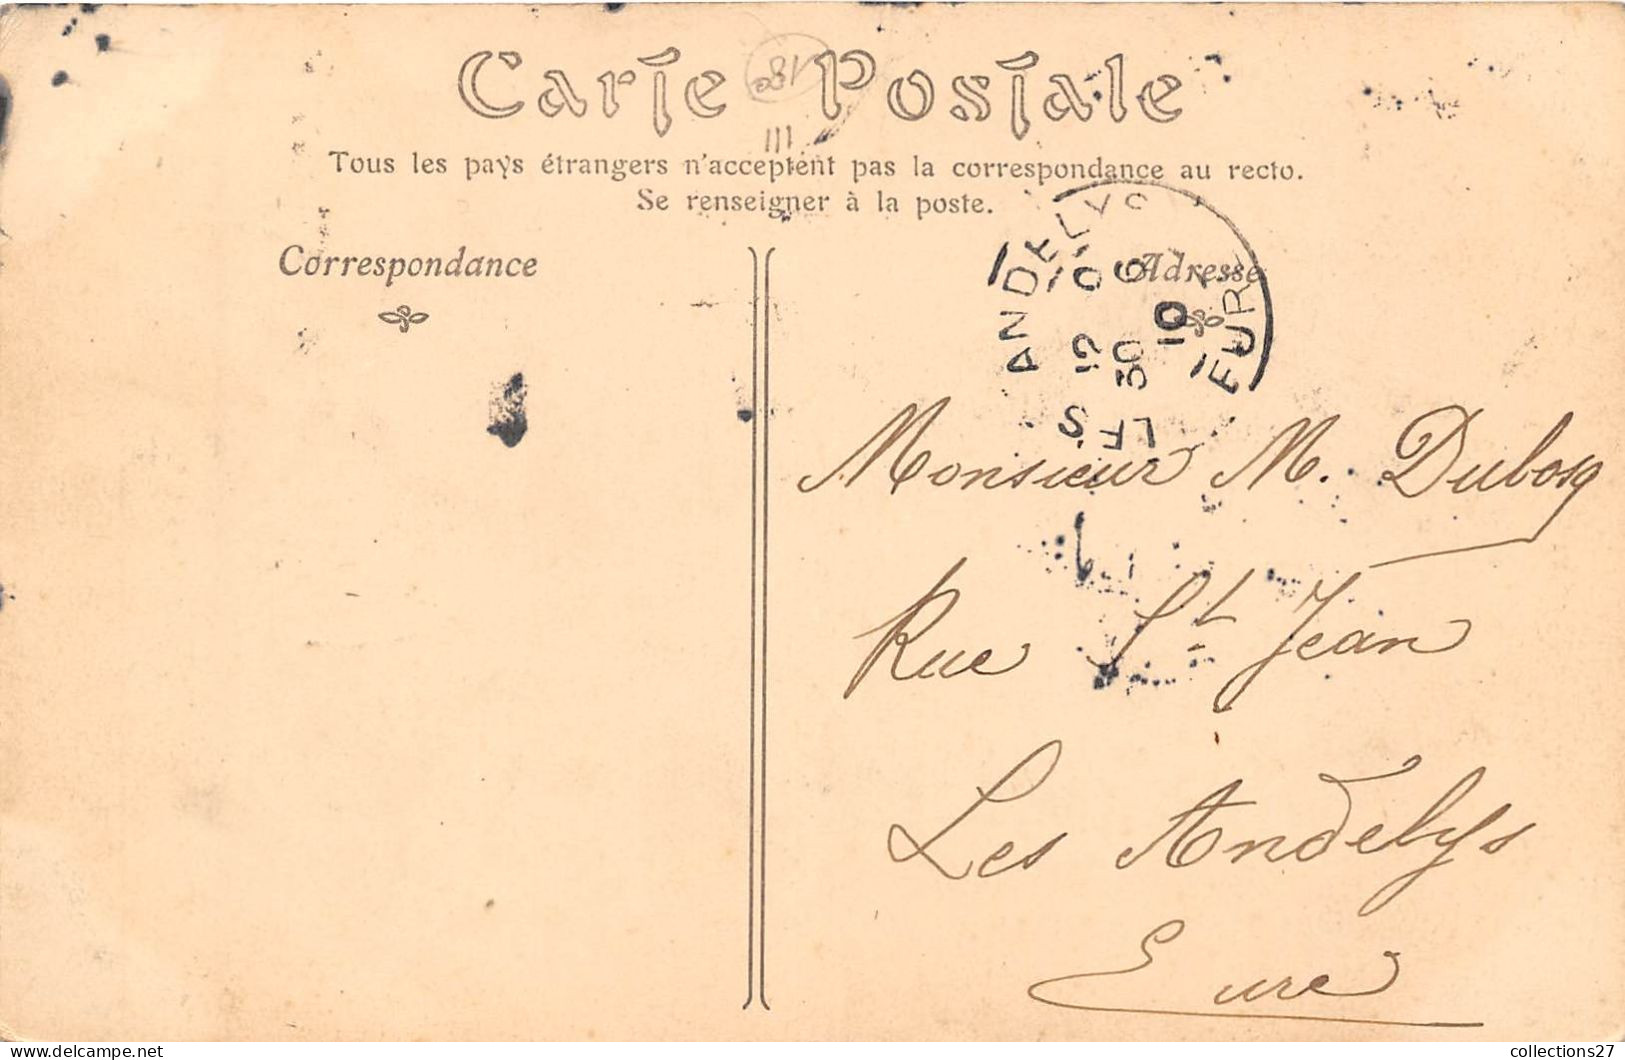 Carte Postale
Tous les pays étrangers n'acceptent pas la correspondance au recto.
Se renseigner à la poste.
Correspondance
Adresse
LES ANDELYS
EURE
30
10
Monsieur M. Dubosq
Rue St Jean
Les Andelys
Eure
collections27